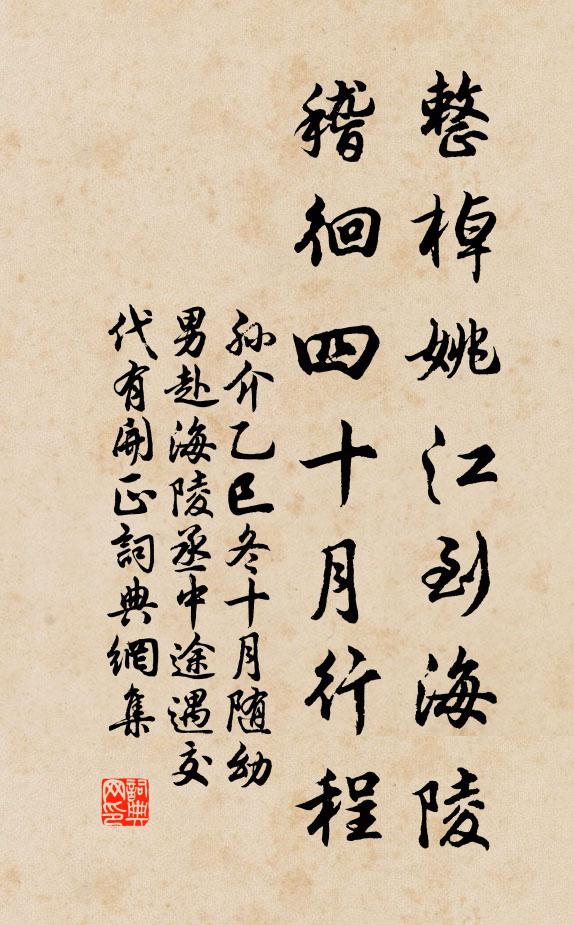 整棹姚江到海陵
稽徊四十月行程
孙介乙巳冬十月随幼
男赴海陵丞中途遇交
代有開正詞典網集
詞典网印